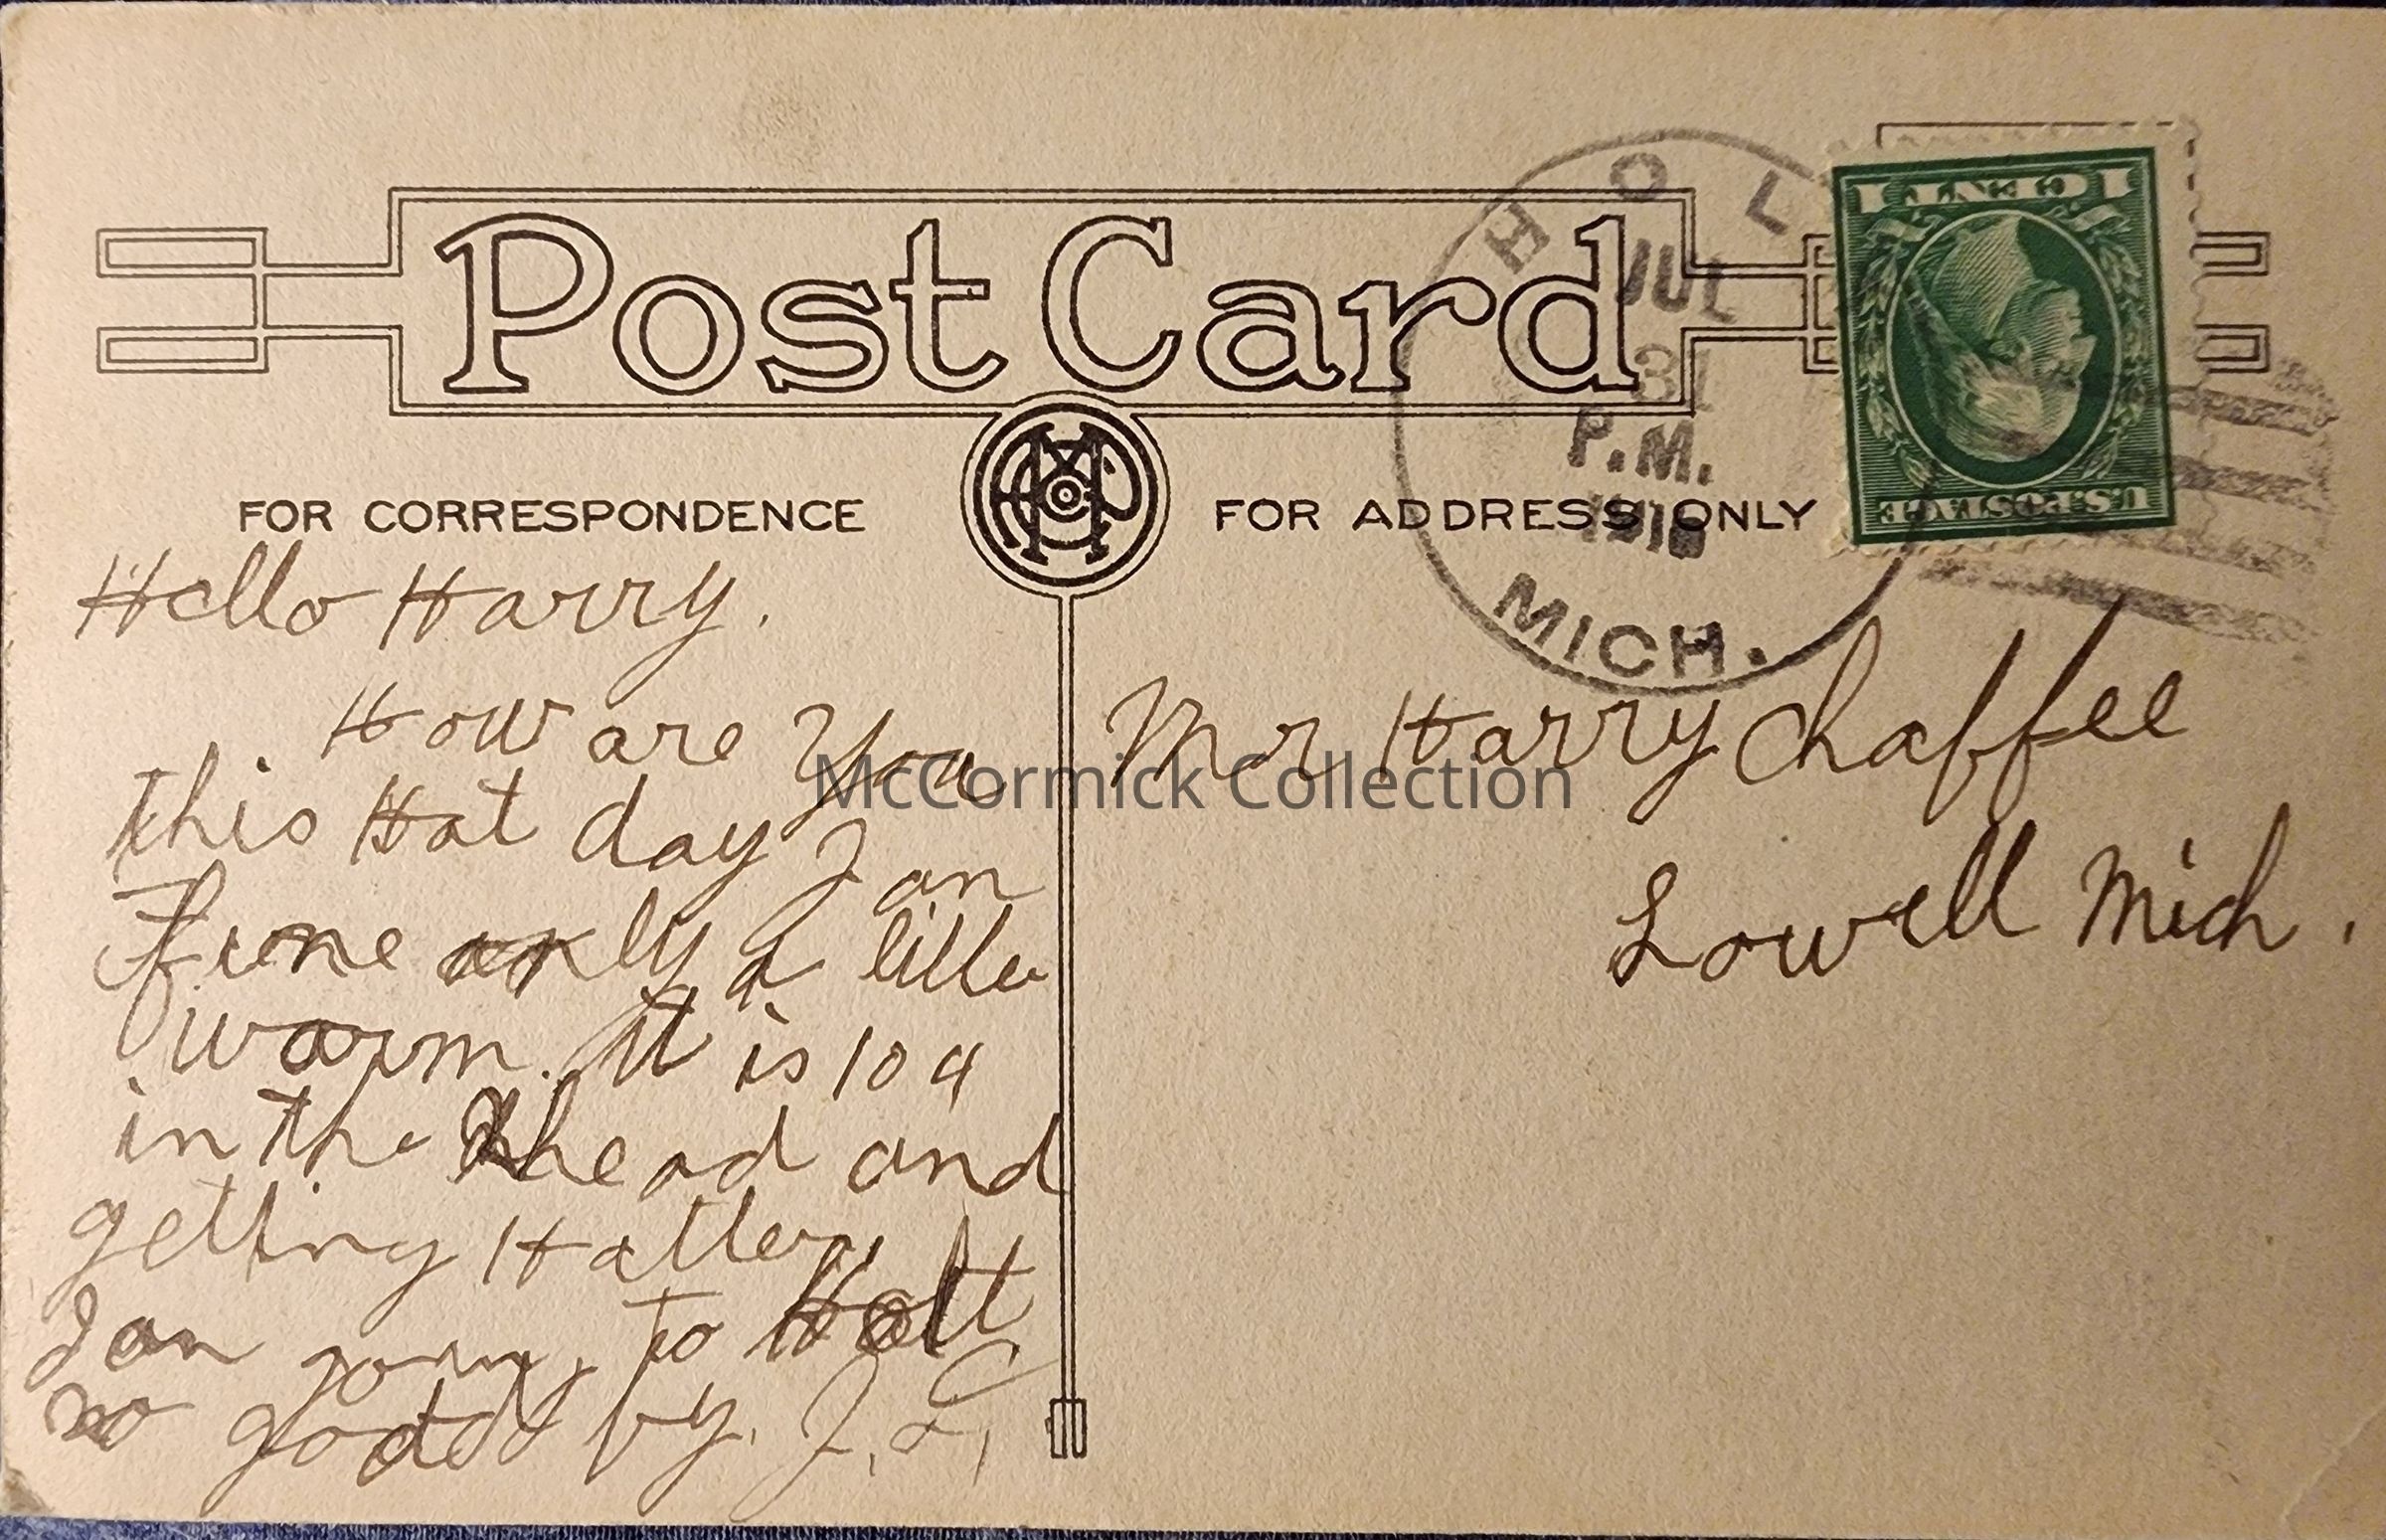 Post Card
FOR CORRESPONDENCE
FOR ADDRESS ONLY
HOL
JUL
31
P.M.
MICH.
1 CENT 1
U.S. POSTAGE
Hello Harry.
How are You
this Hot day I am
fine only a little
warm. It is 104
in the shead and
getting Hatter,
I am going to Holt
so good by. J.
Mr Harry Chaffee
Lowell Mich.
McCormick Collection